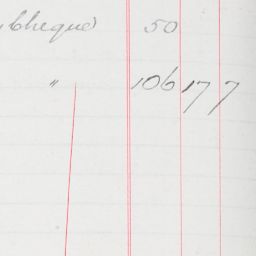 Cheque 50
" 106 17 7